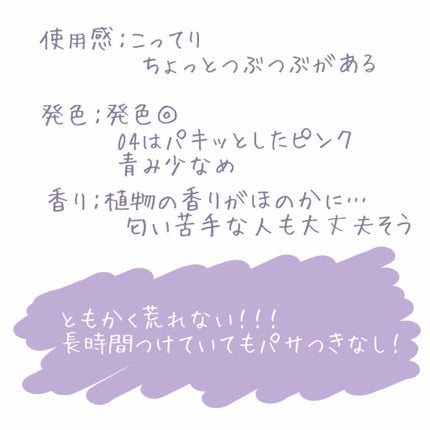 使用感；こってり
ちょっとつぶつぶがある
発色；発色◎
04はパキッとしたピンク
青み少なめ
香り；植物の香りがほのかに…
匂い苦手な人も大丈夫そう
ともかく荒れない！！！
長時間つけていてもパサつきなし！